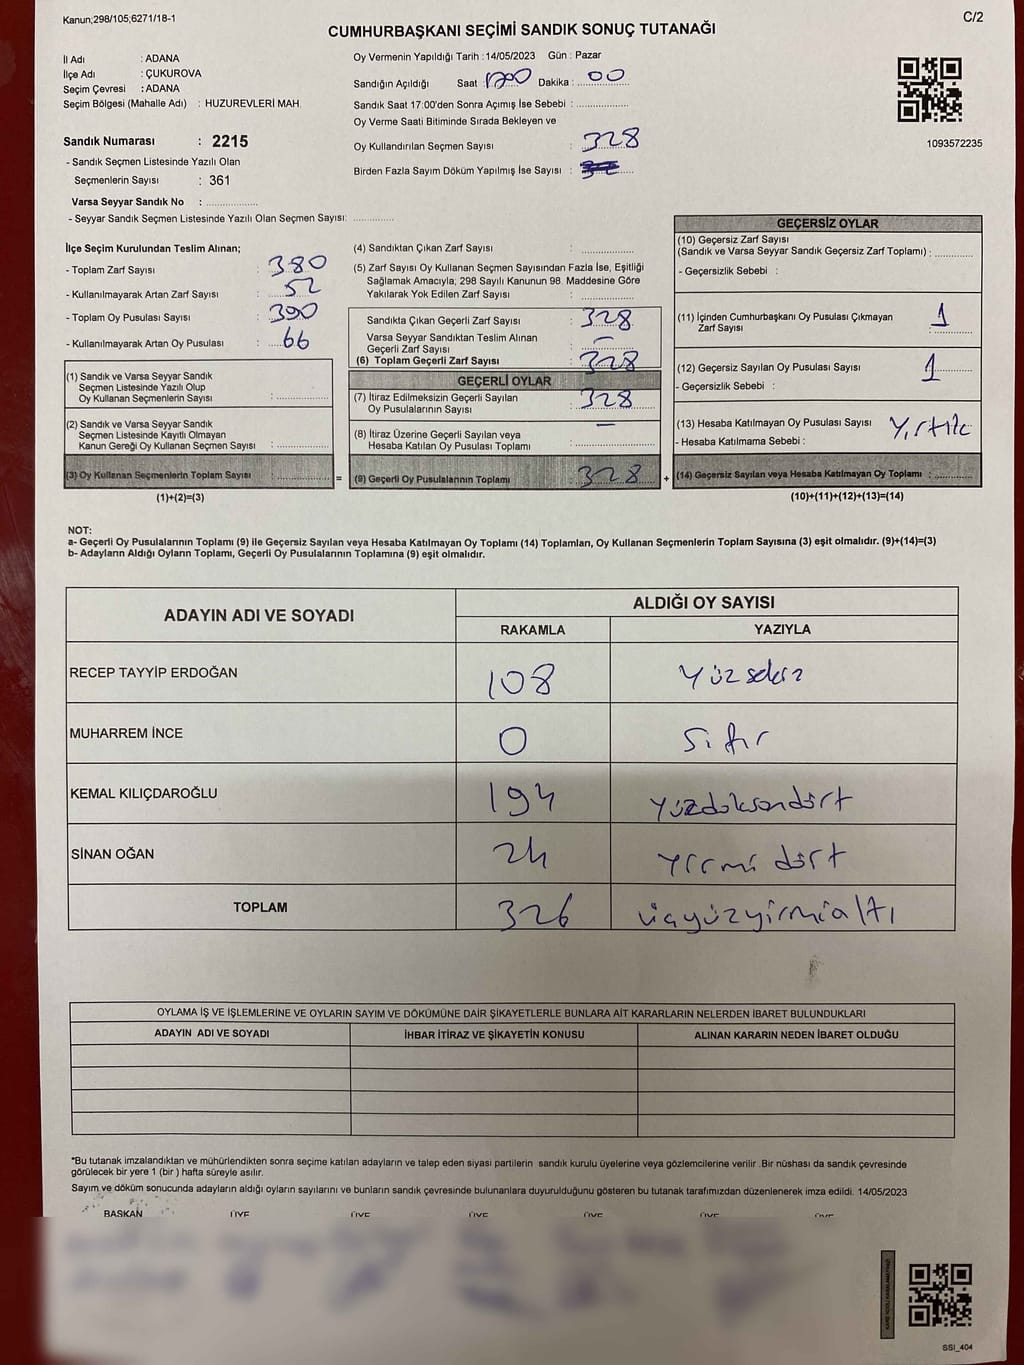 Kanun;298/105;6271/18-1
C/2
CUMHURBAŞKANI SEÇİMİ SANDIK SONUÇ TUTANAĞI
İl Adı : ADANA
İlçe Adı : ÇUKUROVA
Seçim Çevresi : ADANA
Seçim Bölgesi (Mahalle Adı) : HUZUREVLERİ MAH.
Sandık Numarası : 2215
- Sandık Seçmen Listesinde Yazılı Olan
Seçmenlerin Sayısı : 361
Varsa Seyyar Sandık No : ..............
- Seyyar Sandık Seçmen Listesinde Yazılı Olan Seçmen Sayısı: ............
Oy Vermenin Yapıldığı Tarih : 14/05/2023 Gün : Pazar
Sandığın Açıldığı Saat : 1700 Dakika : 00
Sandık Saat 17:00'den Sonra Açımış İse Sebebi : ..............
Oy Verme Saati Bitiminde Sırada Bekleyen ve
Oy Kullandırılan Seçmen Sayısı : 328
Birden Fazla Sayım Döküm Yapılmış İse Sayısı :
1093572235
İlçe Seçim Kurulundan Teslim Alınan;
- Toplam Zarf Sayısı : 380
- Kullanılmayarak Artan Zarf Sayısı : 52
- Toplam Oy Pusulası Sayısı : 390
- Kullanılmayarak Artan Oy Pusulası : 66
(1) Sandık ve Varsa Seyyar Sandık
Seçmen Listesinde Yazılı Olup
Oy Kullanan Seçmenlerin Sayısı : ..............
(2) Sandık ve Varsa Seyyar Sandık
Seçmen Listesinde Kayıtlı Olmayan
Kanun Gereği Oy Kullanan Seçmen Sayısı : ..............
(3) Oy Kullanan Seçmenlerin Toplam Sayısı : ..............
(1)+(2)=(3)
=
(4) Sandıktan Çıkan Zarf Sayısı : ..............
(5) Zarf Sayısı Oy Kullanan Seçmen Sayısından Fazla İse, Eşitliği
Sağlamak Amacıyla; 298 Sayılı Kanunun 98. Maddesine Göre
Yakılarak Yok Edilen Zarf Sayısı : ..............
Sandıkta Çıkan Geçerli Zarf Sayısı : 328
Varsa Seyyar Sandıktan Teslim Alınan
Geçerli Zarf Sayısı : –
(6) Toplam Geçerli Zarf Sayısı : 328
GEÇERLİ OYLAR
(7) İtiraz Edilmeksizin Geçerli Sayılan
Oy Pusulalarının Sayısı : 328
(8) İtiraz Üzerine Geçerli Sayılan veya
Hesaba Katılan Oy Pusulası Toplamı : –
(9) Geçerli Oy Pusulalarının Toplamı : 328
+
GEÇERSİZ OYLAR
(10) Geçersiz Zarf Sayısı
(Sandık ve Varsa Seyyar Sandık Geçersiz Zarf Toplamı) : ............
- Geçersizlik Sebebi :
(11) İçinden Cumhurbaşkanı Oy Pusulası Çıkmayan
Zarf Sayısı : 1
(12) Geçersiz Sayılan Oy Pusulası Sayısı : 1
- Geçersizlik Sebebi :
(13) Hesaba Katılmayan Oy Pusulası Sayısı : Yırtık
- Hesaba Katılmama Sebebi :
(14) Geçersiz Sayılan veya Hesaba Katılmayan Oy Toplamı : ............
(10)+(11)+(12)+(13)=(14)
NOT:
a- Geçerli Oy Pusulalarının Toplamı (9) ile Geçersiz Sayılan veya Hesaba Katılmayan Oy Toplamı (14) Toplamları, Oy Kullanan Seçmenlerin Toplam Sayısına (3) eşit olmalıdır. (9)+(14)=(3)
b- Adayların Aldığı Oyların Toplamı, Geçerli Oy Pusulalarının Toplamına (9) eşit olmalıdır.
ADAYIN ADI VE SOYADI ALDIĞI OY SAYISI
RAKAMLA YAZIYLA
RECEP TAYYİP ERDOĞAN 108 Yüzsekiz
MUHARREM İNCE 0 Sıfır
KEMAL KILIÇDAROĞLU 194 Yüzdoksandört
SİNAN OĞAN 24 Yirmi dört
TOPLAM 326 üçyüzyirmialtı
OYLAMA İŞ VE İŞLEMLERİNE VE OYLARIN SAYIM VE DÖKÜMÜNE DAİR ŞİKAYETLERLE BUNLARA AİT KARARLARIN NELERDEN İBARET BULUNDUKLARI
ADAYIN ADI VE SOYADI İHBAR İTİRAZ VE ŞİKAYETİN KONUSU ALINAN KARARIN NEDEN İBARET OLDUĞU
*Bu tutanak imzalandıktan ve mühürlendikten sonra seçime katılan adayların ve talep eden siyasi partilerin sandık kurulu üyelerine veya gözlemcilerine verilir .Bir nüshası da sandık çevresinde
görülecek bir yere 1 (bir ) hafta süreyle asılır.
Sayım ve döküm sonucunda adayların aldığı oyların sayılarını ve bunların sandık çevresinde bulunanlara duyurulduğunu gösteren bu tutanak tarafımızdan düzenlenerek imza edildi. 14/05/2023
BAŞKAN ÜYE ÜYE ÜYE ÜYE ÜYE ÜYE
SSI_404